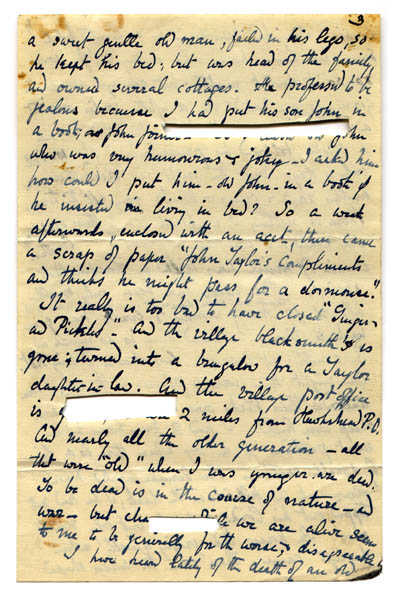 3
a sweet gentle old man, failed in his legs, so
he kept his bed; but was head of the family
and owned several cottages. He professed to be
jealous because I had put his son John in
a book, as John
who was very humourous & jokey – I asked him
how could I put him – old John – in a book if
he insisted on living in bed? So a week
afterwards, enclosed with an acct, there came
a scrap of paper "John Taylor's compliments
and thinks he might pass for a dormouse."
It really is too bad to have closed "Ginger
and Pickles". And the village blacksmith's is
gone; turned into a bungalow for a Taylor
daughter-in-law. And the village post office
is 2 miles from Hawkshead P.O.
And nearly all the older generation – all
that were "old" when I was younger – are dead.
To be dead is in the course of nature – and
war – but while we are alive seem
to me to be generally for the worse, & disagreeable
I have heard lately of the death of an old